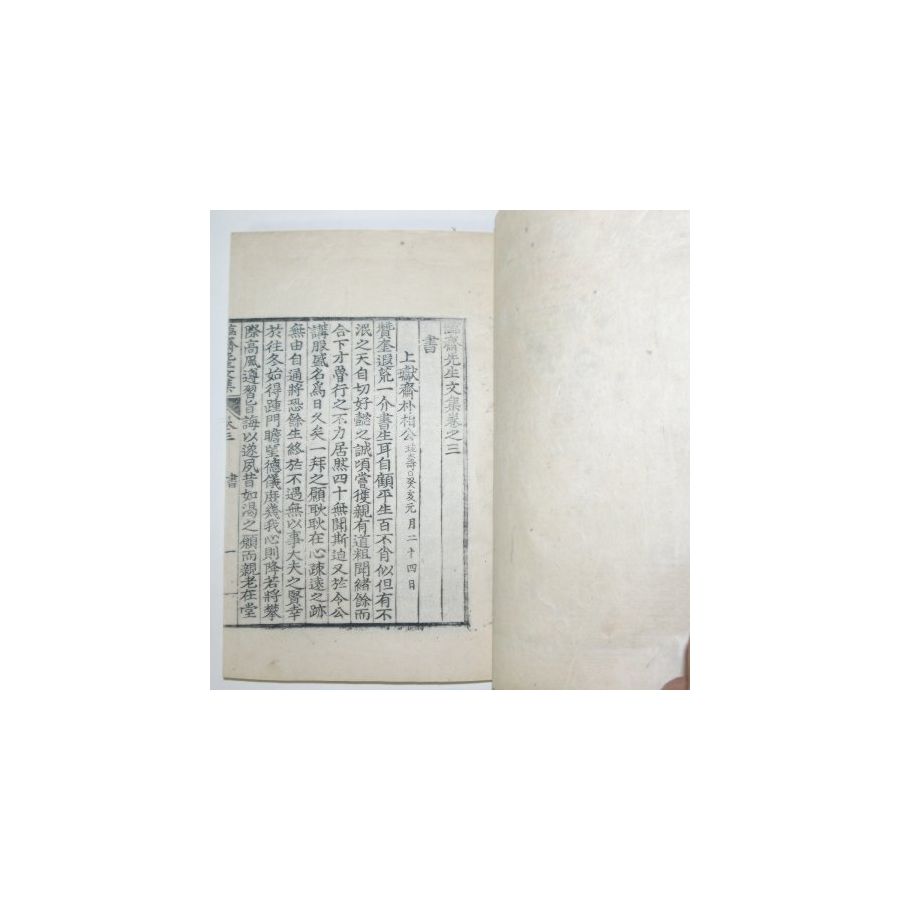 齋先生文集卷之三
書
上嶽齋朴相公 癸亥元月二十四日
贊奎遐荒一介書生耳自顧平生百不肖似但有不
泯之天自切好懿之誠頃嘗獲親有道粗聞緖餘而
合下才魯行之不力居然四十無聞斯迫又於令公
講服盛名爲日久矣一拜之願耿耿在心疎遠之跡
無由自通將恐餘生終於不遇無以事大夫之賢幸
於往冬始得踵門瞻望德儀庶幾我心則降若將攀
際高風遵習旨誨以遂夙昔如渴之願而親老在堂
齋先生文集 卷三 書 一